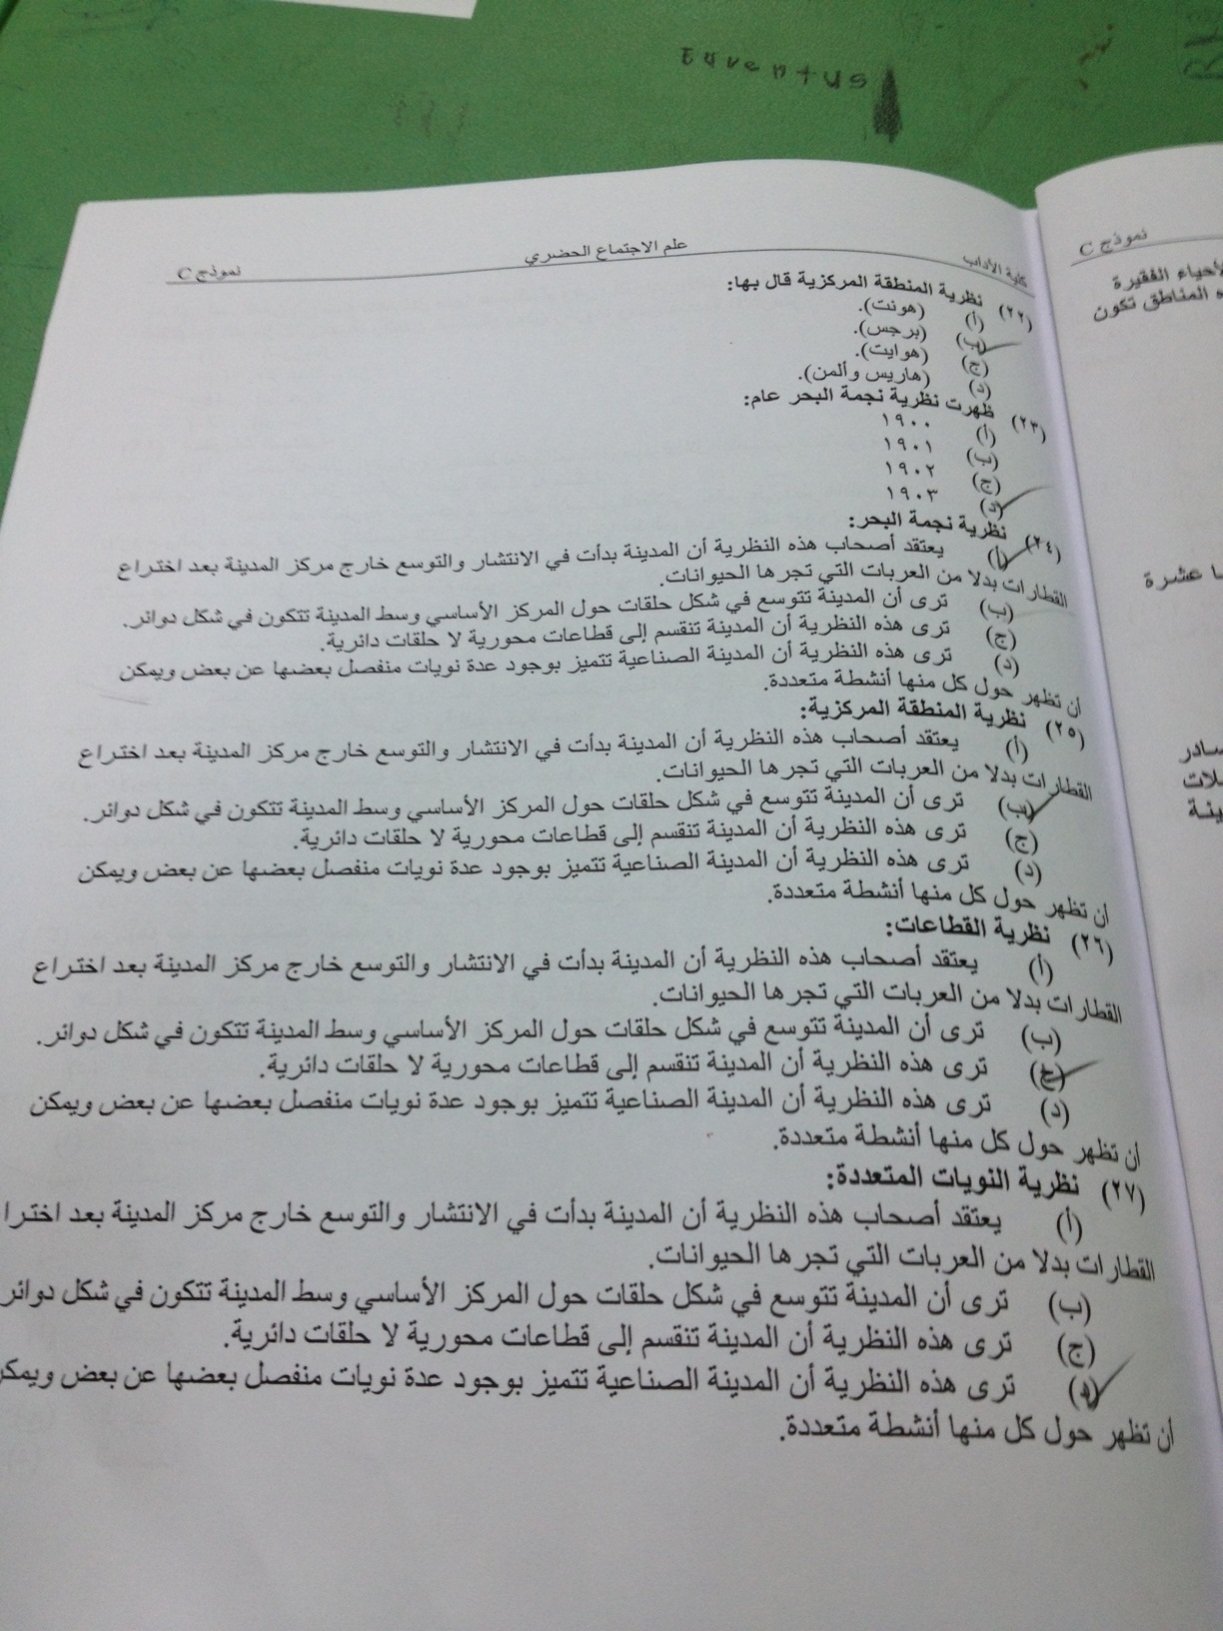 Euventus
نموذج C
لأحياء الفقيرة
المناطق تكون
عشرة
كلية الآداب علم الاجتماع الحضري نموذج C
(٢٢) نظرية المنطقة المركزية قال بها:
(أ) (هونت).
(ب) (برجس).
(ج) (هوايت).
(د) (هاريس وألمن).
(٢٣) ظهرت نظرية نجمة البحر عام:
(أ) ١٩٠٠
(ب) ١٩٠١
(ج) ١٩٠٢
(د) ١٩٠٣
(٢٤) نظرية نجمة البحر:
(أ) يعتقد أصحاب هذه النظرية أن المدينة بدأت في الانتشار والتوسع خارج مركز المدينة بعد اختراع
القطارات بدلا من العربات التي تجرها الحيوانات.
(ب) ترى أن المدينة تتوسع في شكل حلقات حول المركز الأساسي وسط المدينة تتكون في شكل دوائر.
(ج) ترى هذه النظرية أن المدينة تنقسم إلى قطاعات محورية لا حلقات دائرية.
(د) ترى هذه النظرية أن المدينة الصناعية تتميز بوجود عدة نويات منفصل بعضها عن بعض ويمكن
أن تظهر حول كل منها أنشطة متعددة.
(٢٥) نظرية المنطقة المركزية:
(أ) يعتقد أصحاب هذه النظرية أن المدينة بدأت في الانتشار والتوسع خارج مركز المدينة بعد اختراع
القطارات بدلا من العربات التي تجرها الحيوانات.
(ب) ترى أن المدينة تتوسع في شكل حلقات حول المركز الأساسي وسط المدينة تتكون في شكل دوائر.
(ج) ترى هذه النظرية أن المدينة تنقسم إلى قطاعات محورية لا حلقات دائرية.
(د) ترى هذه النظرية أن المدينة الصناعية تتميز بوجود عدة نويات منفصل بعضها عن بعض ويمكن
أن تظهر حول كل منها أنشطة متعددة.
(٢٦) نظرية القطاعات:
(أ) يعتقد أصحاب هذه النظرية أن المدينة بدأت في الانتشار والتوسع خارج مركز المدينة بعد اختراع
القطارات بدلا من العربات التي تجرها الحيوانات.
(ب) ترى أن المدينة تتوسع في شكل حلقات حول المركز الأساسي وسط المدينة تتكون في شكل دوائر.
(ج) ترى هذه النظرية أن المدينة تنقسم إلى قطاعات محورية لا حلقات دائرية.
(د) ترى هذه النظرية أن المدينة الصناعية تتميز بوجود عدة نويات منفصل بعضها عن بعض ويمكن
أن تظهر حول كل منها أنشطة متعددة.
(٢٧) نظرية النويات المتعددة:
(أ) يعتقد أصحاب هذه النظرية أن المدينة بدأت في الانتشار والتوسع خارج مركز المدينة بعد اخترا
القطارات بدلا من العربات التي تجرها الحيوانات.
(ب) ترى أن المدينة تتوسع في شكل حلقات حول المركز الأساسي وسط المدينة تتكون في شكل دوائر
(ج) ترى هذه النظرية أن المدينة تنقسم إلى قطاعات محورية لا حلقات دائرية.
(د) ترى هذه النظرية أن المدينة الصناعية تتميز بوجود عدة نويات منفصل بعضها عن بعض ويمكن
أن تظهر حول كل منها أنشطة متعددة.